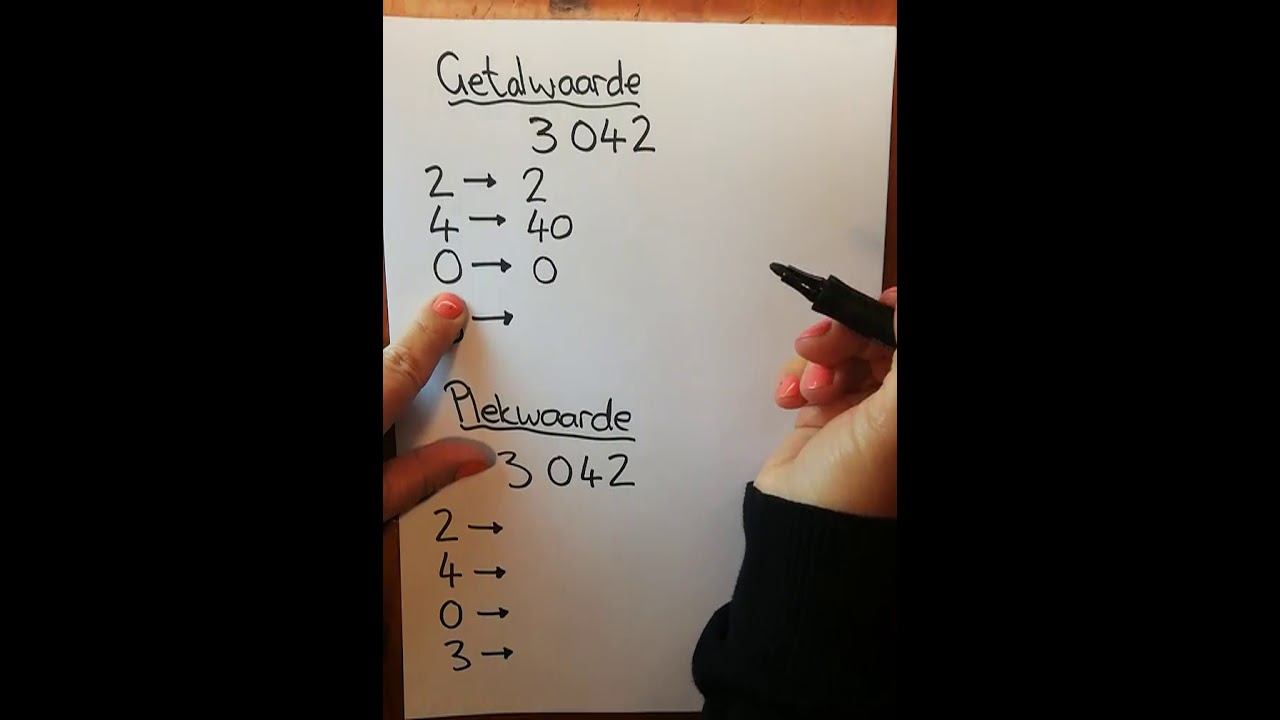 Getalwaarde
3 042
2 → 2
4 → 40
0 → 0
→
Plekwaarde
3 042
2 →
4 →
0 →
3 →